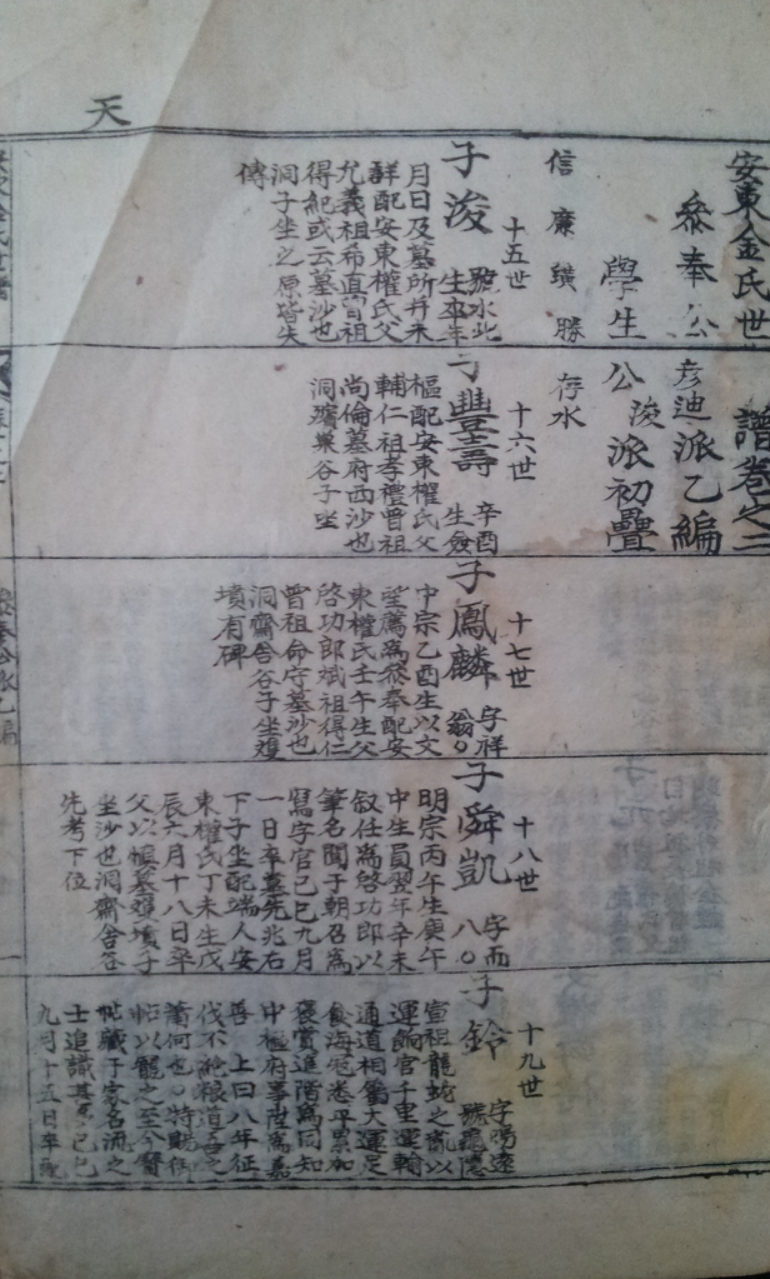 天
安東金氏世譜卷之二
叅奉公彦迪派乙編
學生公浚派初疊
信廉璜勝
存水
十五世
子浚
號水北
生卒年
月日及墓所幷未
詳配安東權氏父
允義祖希直曾祖
得紀或云墓沙也
洞子坐之原皆失
傳
十六世
子豐壽
辛酉
生僉
樞配安東權氏父
輔仁祖孝禮曾祖
尚倫墓府西沙也
洞㼁巢谷子坐
十七世
子鳳麟
字祥
翁○
中宗乙酉生以文
望薦爲叅奉配安
東權氏壬午生父
啓功郎斌祖得仁
曾祖命守墓沙也
洞齋舍谷子坐雙
墳有碑
十八世
子舜凱
字而
八○
明宗丙午生庚午
中生員翌年辛未
叙任爲啓功郎以
筆名聞于朝召爲
寫字官己巳九月
一日卒墓先兆右
下子坐配端人安
東權氏丁未生戊
辰六月十八日卒
父以愼墓雙墳子
坐沙也洞齋舍谷
先考下位
十九世
子鈴
宣祖龍蛇之亂以
運餉官千里運輸
通道相屬大運足
食海寇悉平累加
褒賞進階爲同知
中樞府事陞爲嘉
善 上曰八年征
伐不絶粮道吾之
蕭何也○特賜御
帖以寵之至今寶
帖藏于家名流之
士追識其 己巳
九月十五日卒配